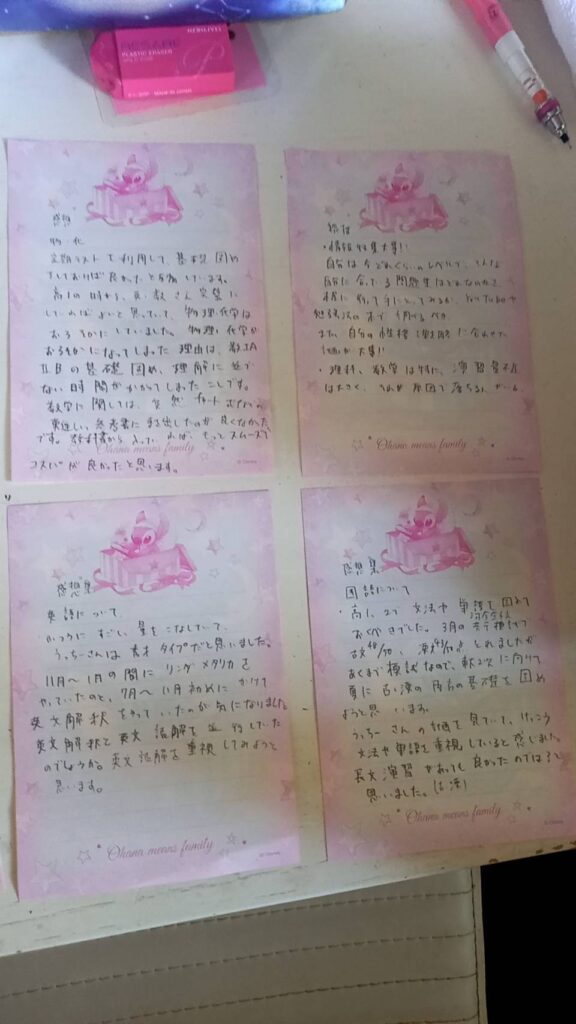 PLASTIC ERASER
MADE IN JAPAN
感想
物・化
定期テストを利用して、基礎固め
をしておけば良かったと
しています。
高1の時から、英・数さえ完璧に
していればよいと思っていて、物理・化学は
おろそかにしていました。物理・化学が
おろそかになってしまった理由は、数ⅠA
ⅡBの基礎固め、理解に
ない時間がかかってしまったことです。
数学に関しては、突然チャート
参考書に
したのが良くなかった
です。教科書から入っていれば、もっとスムーズで
コスパが良かったと思います。
Ohana means family
© Disney
・情報収集大事!!
自分は今どれくらいのレベルで、どんな
自分に合っている問題集はどれなのか
YouTubeや
勉強法の本で調べるべき
また、自分の性格
に合わせた
計画が大事!!
・理科、数学は特に、演習量不足
は大きく、それが原因で落ちる人が
Ohana means family
© Disney
感想集
英語について
ふつうにすごい量をこなしていて、
うっちーさんは秀才タイプだと思いました。
11月〜1月の間にリンガメタリカを
やっていたのと、7月〜11月初めにかけて
英文解釈をやっていたのが気になりました
英文解釈と英文読解を並行していた
のでしょうか。英文読解を重視してみようと
思います。
Ohana means family
© Disney
感想集
国語について
・高1、2で文法や単語を固めて
おくべきでした。3月の
河合全統
模試で
古文
とれましたが
あくまで模試なので、
次に向けて
更に古・漢の
の基礎を固め
ようと思います。
うっちーさんの計画を見ていて、けっこう
文法や単語を重視していると感じました。
長文演習があっても良かったのでは?と
思いました。(古漢)
Ohana means family
© Disney